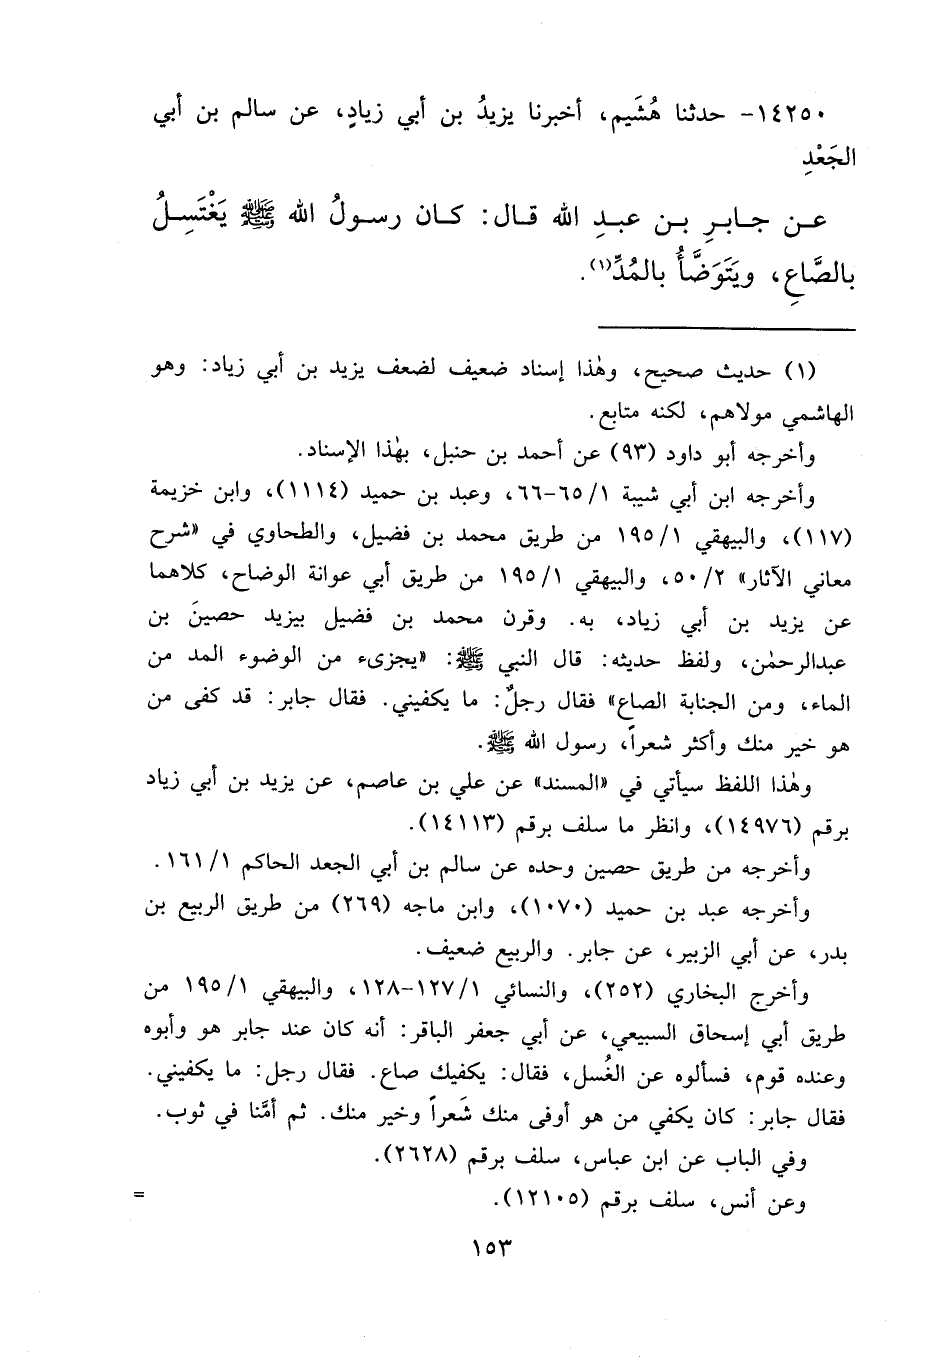 ١٤٢٥٠- حدثنا هُشَيم، أخبرنا يزيدُ بن أبي زيادٍ، عن سالم بن أبي
الجَعْدِ
عن جابرِ بن عبدِ الله قال: كان رسولُ الله ﷺ يَغْتَسِلُ
بالصَّاعِ، ويَتَوَضَّأُ بالمُدِّ(١).
(١) حديث صحيح، وهٰذا إسناد ضعيف لضعف يزيد بن أبي زياد: وهو
الهاشمي مولاهم، لكنه متابع.
وأخرجه أبو داود (٩٣) عن أحمد بن حنبل، بهٰذا الإسناد.
وأخرجه ابن أبي شيبة ١/ ٦٥-٦٦، وعبد بن حميد (١١١٤)، وابن خزيمة
(١١٧)، والبيهقي ١/ ١٩٥ من طريق محمد بن فضيل، والطحاوي في «شرح
معاني الآثار» ٢/ ٥٠، والبيهقي ١/ ١٩٥ من طريق أبي عوانة الوضاح، كلاهما
عن يزيد بن أبي زياد، به. وقرن محمد بن فضيل بيزيد حصينَ بن
عبدالرحمٰن، ولفظ حديثه: قال النبي ﷺ: «يجزىء من الوضوء المد من
الماء، ومن الجنابة الصاع» فقال رجلٌ: ما يكفيني. فقال جابر: قد كفى من
هو خير منك وأكثر شعراً، رسول الله ﷺ.
وهٰذا اللفظ سيأتي في «المسند» عن علي بن عاصم، عن يزيد بن أبي زياد
برقم (١٤٩٧٦)، وانظر ما سلف برقم (١٤١١٣).
وأخرجه من طريق حصين وحده عن سالم بن أبي الجعد الحاكم ١/ ١٦١.
وأخرجه عبد بن حميد (١٠٧٠)، وابن ماجه (٢٦٩) من طريق الربيع بن
بدر، عن أبي الزبير، عن جابر. والربيع ضعيف.
وأخرج البخاري (٢٥٢)، والنسائي ١/ ١٢٧-١٢٨، والبيهقي ١/ ١٩٥ من
طريق أبي إسحاق السبيعي، عن أبي جعفر الباقر: أنه كان عند جابر هو وأبوه
وعنده قوم، فسألوه عن الغُسل، فقال: يكفيك صاع. فقال رجل: ما يكفيني.
فقال جابر: كان يكفي من هو أوفى منك شَعراً وخير منك. ثم أمَّنا في ثوب.
وفي الباب عن ابن عباس، سلف برقم (٢٦٢٨).
وعن أنس، سلف برقم (١٢١٠٥). =
١٥٣